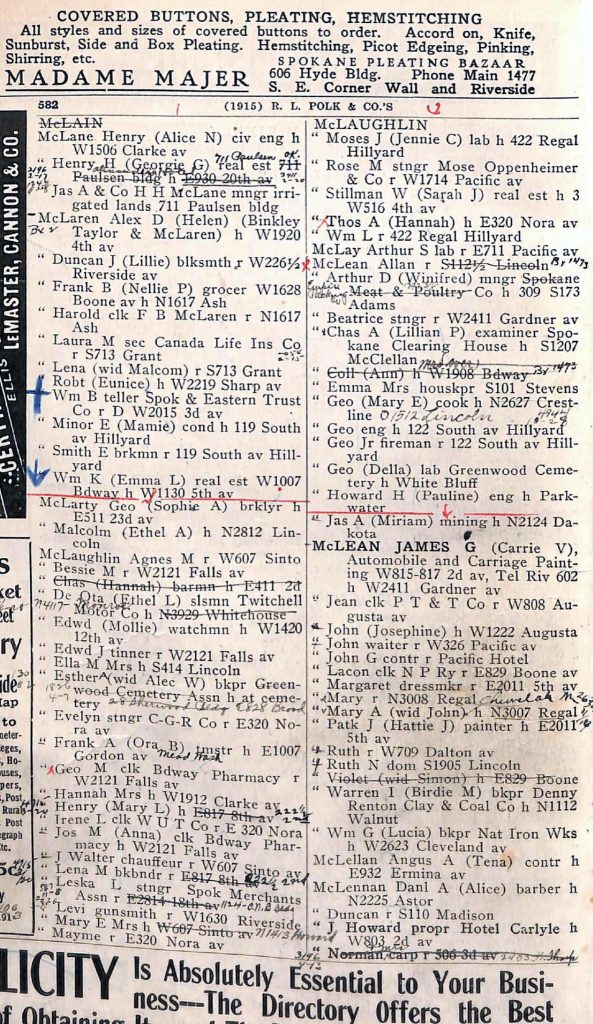 COVERED BUTTONS, PLEATING, HEMSTITCHING
All styles and sizes of covered buttons to order. Accord on, Knife,
Sunburst, Side and Box Pleating. Hemstitching, Picot Edgeing, Pinking,
Shirring, etc.
SPOKANE PLEATING BAZAAR
MADAME MAJER
606 Hyde Bldg. Phone Main 1477
S. E. Corner Wall and Riverside
582
(1915) R. L. POLK & CO.'S
LEMASTER, CANNON & CO.
McLAIN
McLane Henry (Alice N) civ eng h
W1506 Clarke av
" Henry H (Georgie G) real est 711
Paulsen bldg h E930 20th av
" Jas A & Co H H McLane mngr irri-
gated lands 711 Paulsen bldg
McLaren Alex D (Helen) (Binkley
Taylor & McLaren) h W1920
4th av
" Duncan J (Lillie) blksmth r W226½
Riverside av
" Frank B (Nellie P) grocer W1628
Boone av h N1617 Ash
" Harold clk F B McLaren r N1617
Ash
" Laura M sec Canada Life Ins Co
r S713 Grant
" Lena (wid Malcom) r S713 Grant
" Robt (Eunice) h W2219 Sharp av
" Wm B teller Spok & Eastern Trust
Co r D W2015 3d av
" Minor E (Mamie) cond h 119 South
av Hillyard
" Smith E brkmn r 119 South av Hill-
yard
" Wm K (Emma L) real est W1007
Bdway h W1130 5th av
McLarty Geo (Sophie A) brklyr h
E511 23d av
" Malcolm (Ethel A) h N2812 Lin-
coln
McLaughlin Agnes M r W607 Sinto
" Bessie M r W2121 Falls av
" Chas (Hannah) barmn h E411 2d
" De Ota (Ethel L) slsmn Twitchell
Co h N3929 Whitehouse
" Edwd (Mollie) watchmn h W1420
12th av
" Edwd J tinner r W2121 Falls av
" Ella M Mrs h S414 Lincoln
" Esther (wid Alec W) bkpr Green-
wood Cemetery Assn h at ceme-
tery
" Evelyn stngr C-G-R Co r E320 No-
ra av
" Frank A (Ora B) tmstr h E1007
Gordon av
" Geo M clk Bdway Pharmacy r
W2121 Falls av
" Hannah Mrs h W1912 Clarke av
" Henry (Mary L) h E817 8th av
" Irene L clk W U T Co r E 320 Nora
" Jos M (Anna) clk Bdway Phar-
macy h W2121 Falls av
" J Walter chauffeur r W607 Sinto av
" Lena M bkbndr r E817 8th av
" Leska L stngr Spok Merchants
Assn r E2814 18th av
" Levi gunsmith r W1630 Riverside
" Mary E Mrs h W607 Sinto av
" Mayme r E320 Nora av
McLAUGHLIN
" Moses J (Jennie C) lab h 422 Regal
Hillyard
" Rose M stngr Mose Oppenheimer
& Co r W1714 Pacific av
" Stillman W (Sarah J) real est h 3
W516 4th av
" Thos A (Hannah) h E320 Nora av
" Wm L r 422 Regal Hillyard
McLay Arthur S lab r E711 Pacific av
McLean Allan r S112½ Lincoln
" Arthur D (Winifred) mngr Spokane
Meat & Poultry Co h 309 S173
Adams
" Beatrice stngr r W2411 Gardner av
" Chas A (Lillian P) examiner Spo-
kane Clearing House h S1207
McClellan
" Coll (Ann) h W1908 Bdway
" Emma Mrs houskpr S101 Stevens
" Geo (Mary E) cook h N2627 Crest-
line 01512 Lincoln
" Geo eng h 122 South av Hillyard
" Geo Jr fireman r 122 South av Hill-
yard
" Geo (Della) lab Greenwood Ceme-
tery h White Bluff
" Howard H (Pauline) eng h Park-
water
" Jas A (Miriam) mining h N2124 Da-
kota
McLEAN JAMES G (Carrie V),
Automobile and Carriage Paint-
ing W815-817 2d av, Tel Riv 602
h W2411 Gardner av
" Jean clk P T & T Co r W808 Au-
gusta av
" John (Josephine) h W1222 Augusta
" John waiter r W326 Pacific av
" John G contr r Pacific Hotel
" Lacon clk N P Ry r E829 Boone av
" Margaret dressmkr r E2011 5th av
" Mary r N3008 Regal
" Mary A (wid John) h N3007 Regal
" Patk J (Hattie J) painter h E2011
5th av
" Ruth r W709 Dalton av
" Ruth N dom S1905 Lincoln
" Violet (wid Simon) h E829 Boone
" Warren I (Birdie M) bkpr Denny
Renton Clay & Coal Co h N1112
Walnut
" Wm G (Lucia) bkpr Nat Iron Wks
h W2623 Cleveland av
McLellan Angus A (Tena) contr h
E932 Ermina av
McLennan Danl A (Alice) barber h
N2225 Astor
" Duncan r S110 Madison
" J Howard propr Hotel Carlyle h
W803 2d av
" Norman carp r 506 3d av
LICITY
Is Absolutely Essential to Your Busi-
ness---The Directory Offers the Best